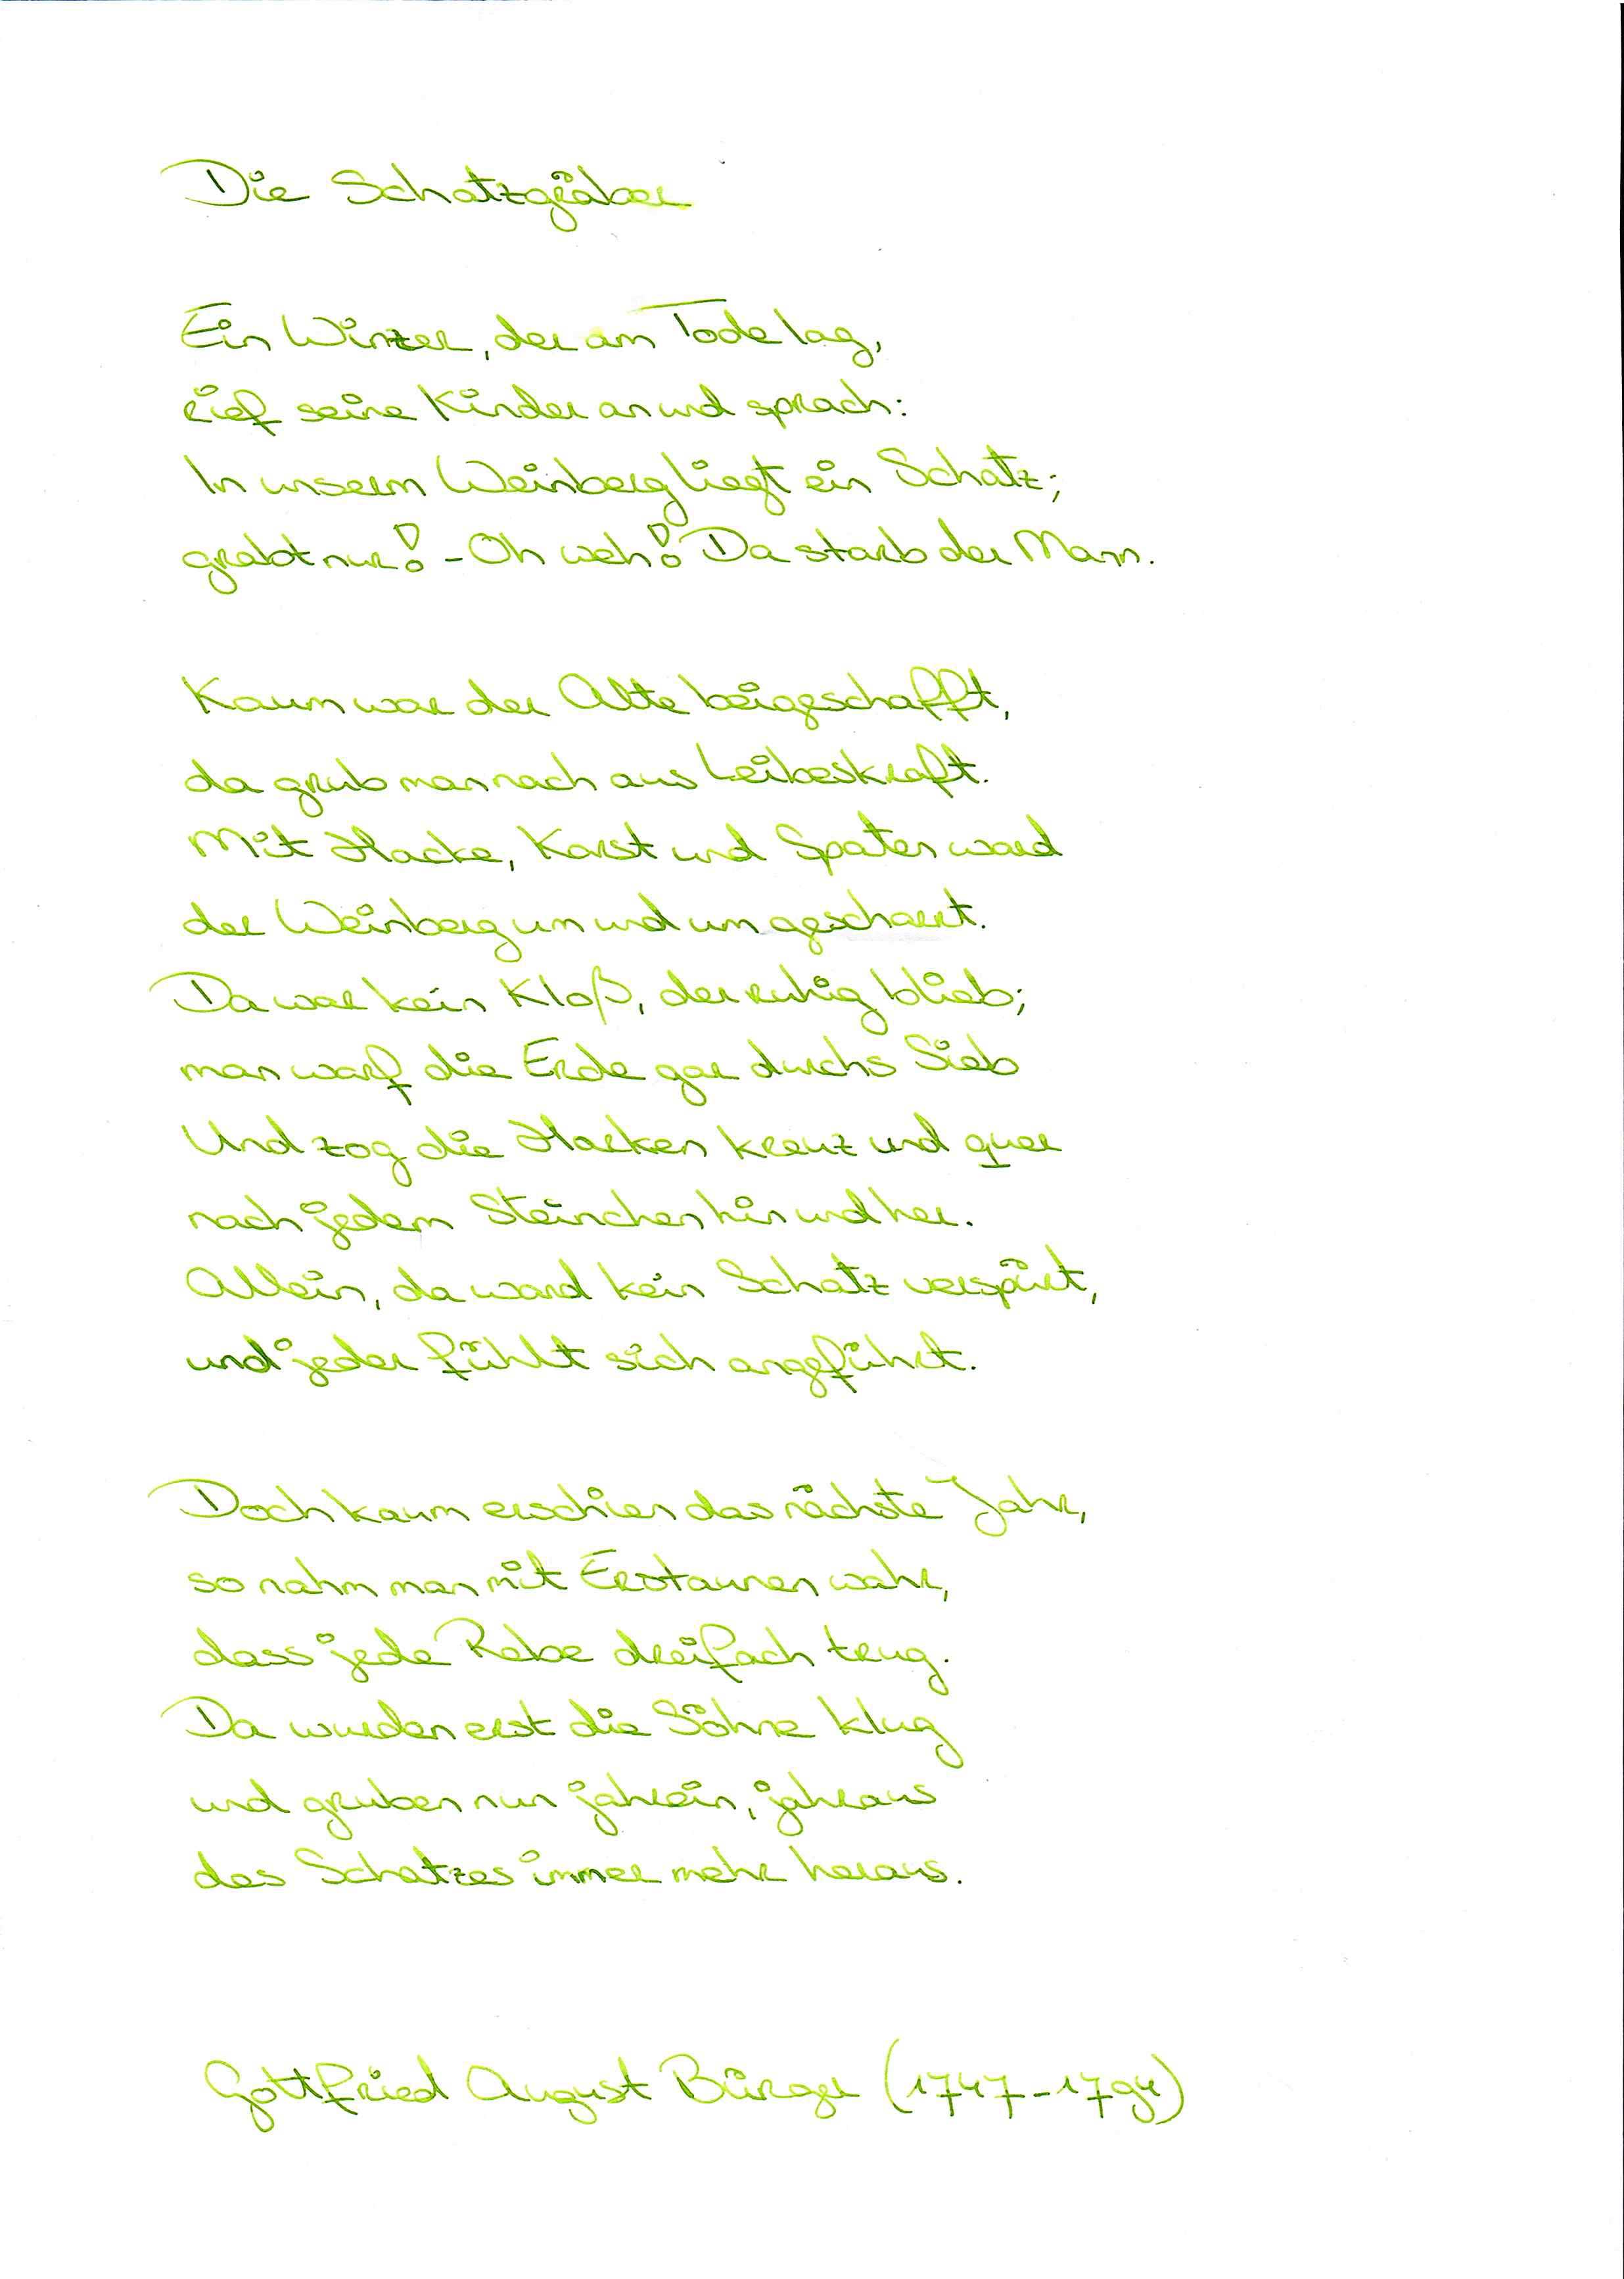 Die Schatzgräber
Ein Winzer, der am Tode lag,
rief seine Kinder an und sprach:
In unserm Weinberg liegt ein Schatz;
grabt nur! - Oh weh! Da starb der Mann.
Kaum war der Alte beigeschafft,
da grub man nach aus Leibeskraft.
Mit Hacke, Karst und Spaten ward
der Weinberg um und um gescharrt.
Da war kein Kloß, der ruhig blieb;
man warf die Erde gar durchs Sieb
Und zog die Harken kreuz und quer
nach jedem Steinchen hin und her.
Allein, da ward kein Schatz verspürt,
und jeder fühlt sich angeführt.
Doch kaum erschien das nächste Jahr,
so nahm man mit Erstaunen wahr,
dass jede Rebe dreifach trug.
Da wurden erst die Söhne klug
und gruben nun jahrein, jahraus
des Schatzes immer mehr heraus.
Gottfried August Bürger (1747-1794)